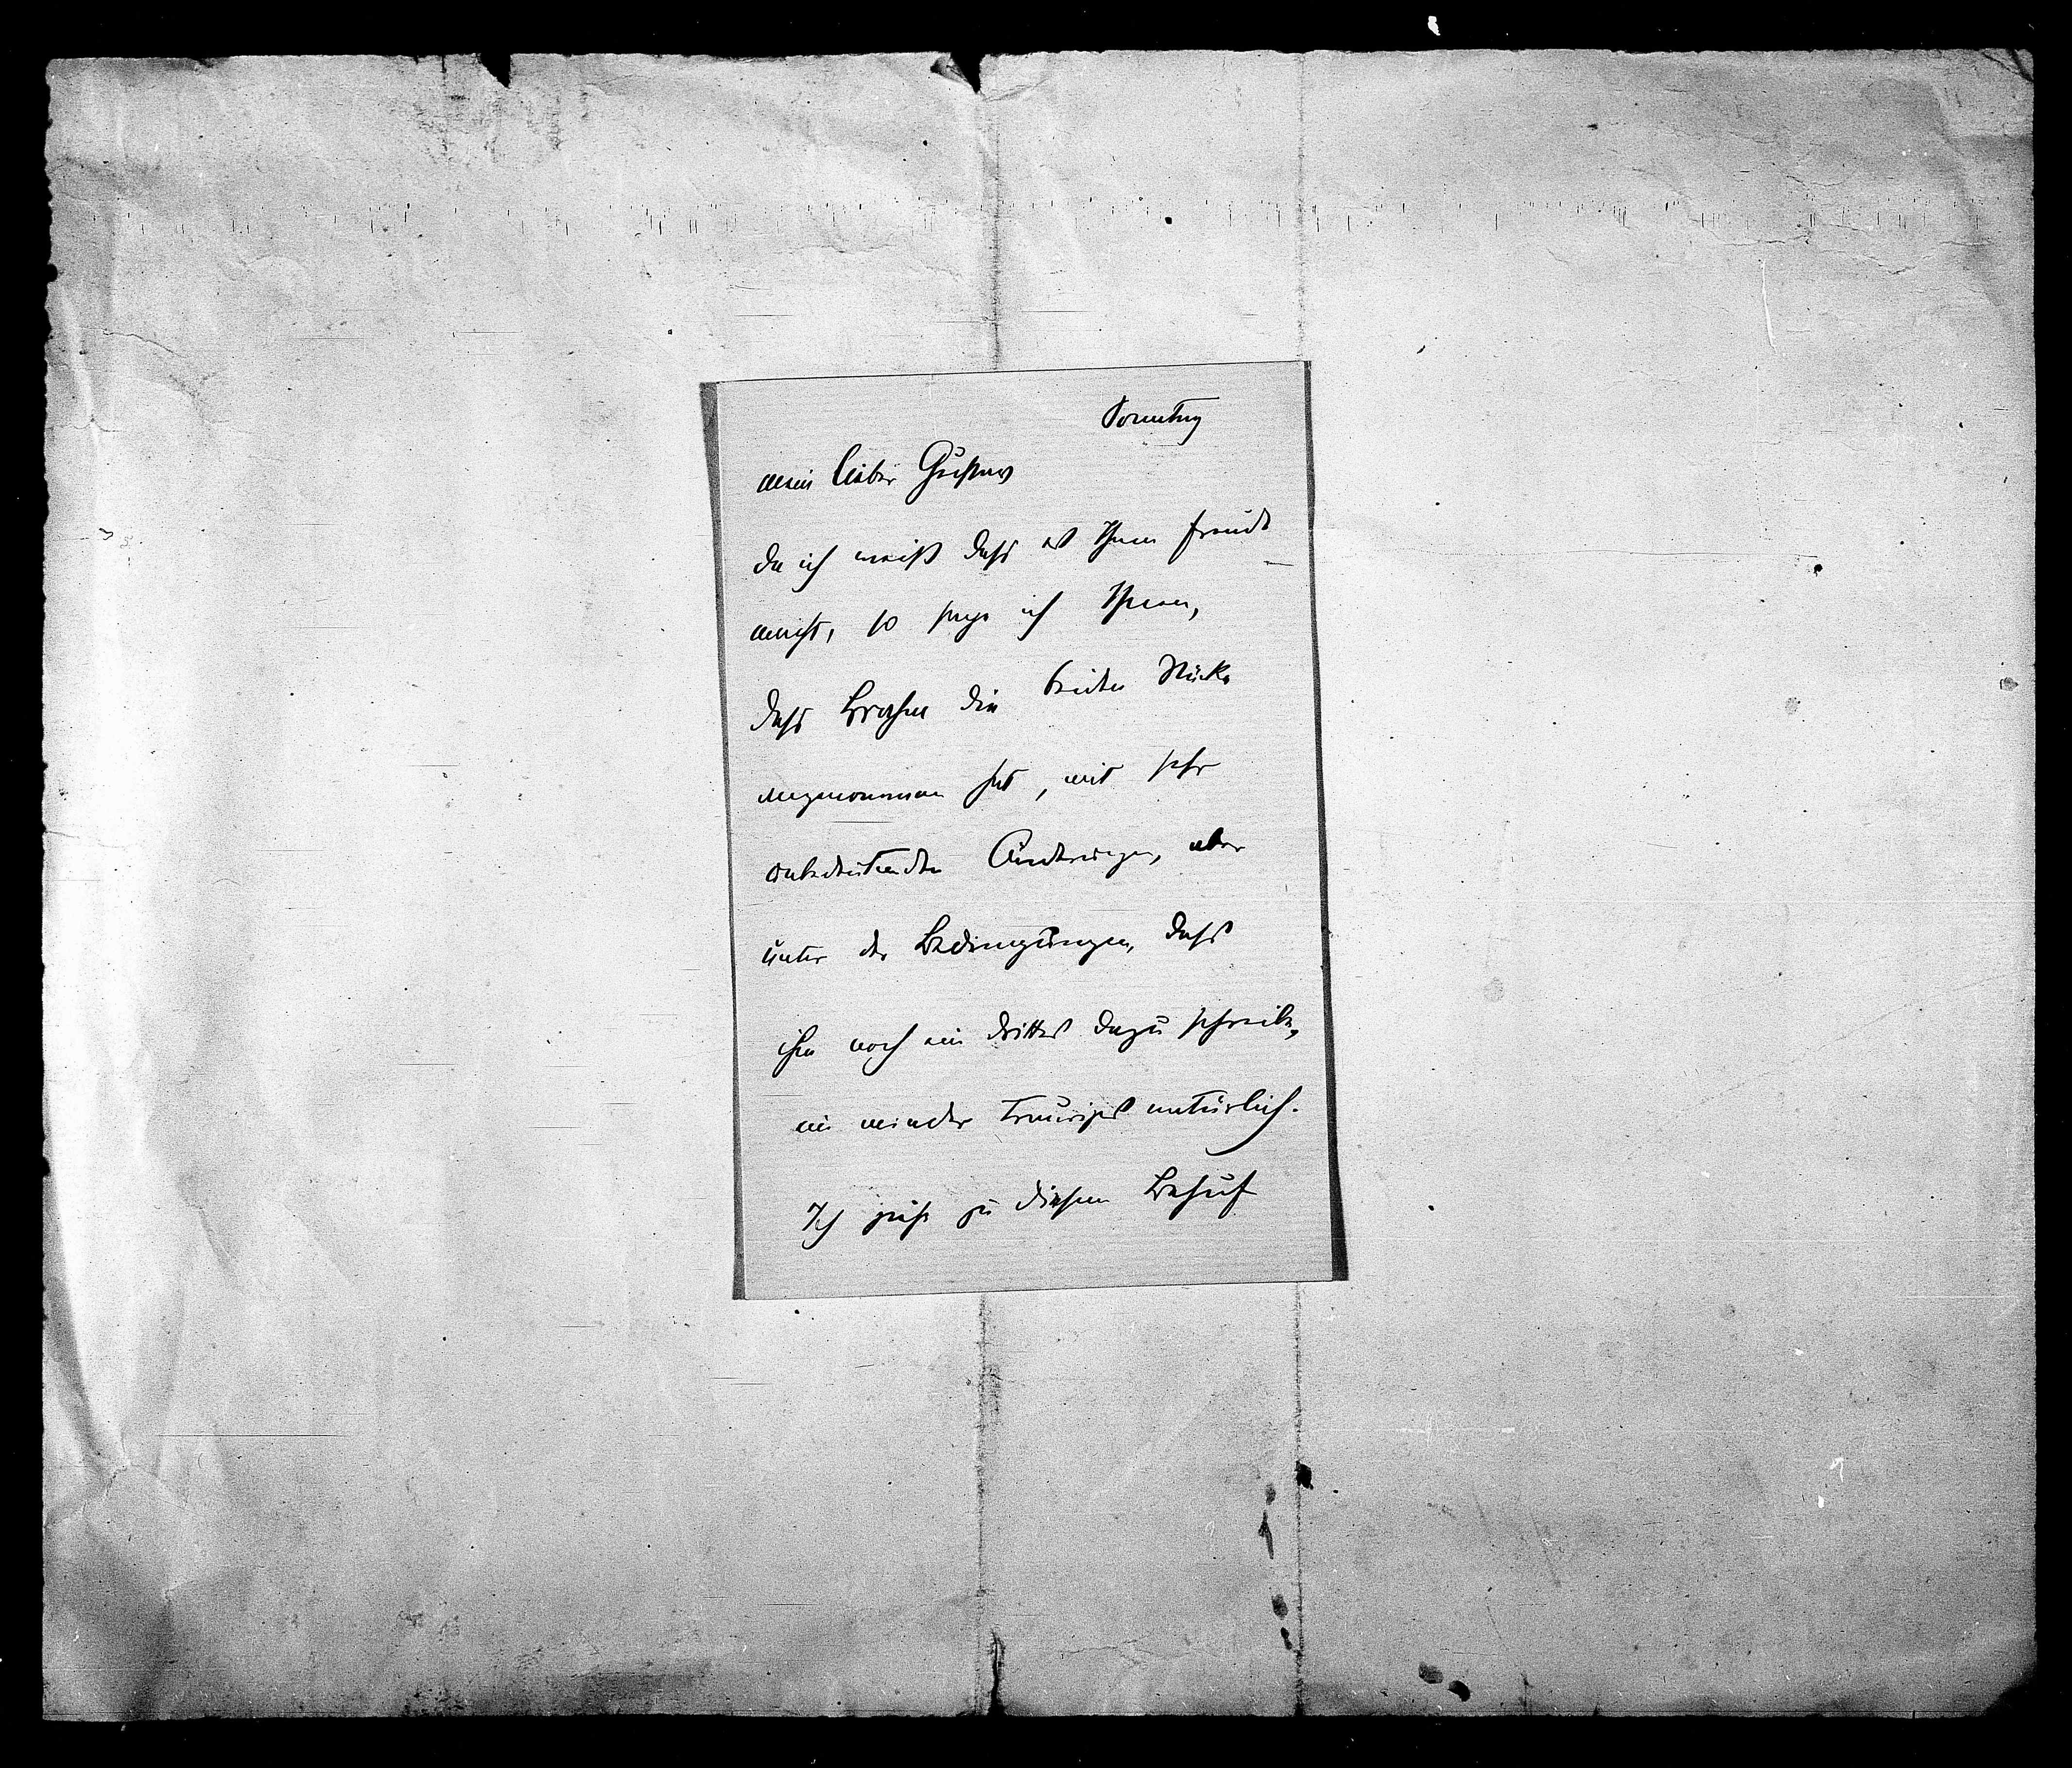 Sonntag
mein lieber Gustav
da ich weiß dass es Ihnen Freude
macht, so sage ich Ihnen,
dass Brahm die beiden Stücke
angenommen hat, mit sehr
unbedeutenden Änderungen, aber
unter den Bedingungen, dass
ihm noch ein drittes dazu schreibe,
ein minder trauriges natürlich.
Ich gehe zu diesem Behuf